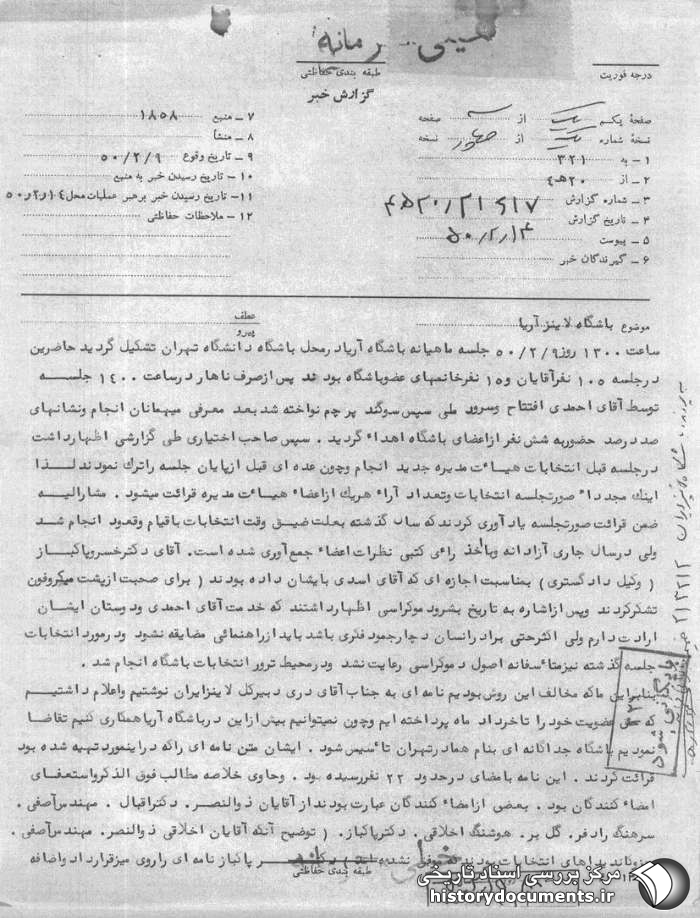 طبقه بندی حفاظتی
گزارش خبر
درجه فوریت
صفحهٔ یکم یک از سه صفحه
نسخهٔ شماره یک از چهار نسخه
۱ - به ۳۲۱
۲ - از ۲۰ه۴
۳ - شماره گزارش
۴ - تاریخ گزارش ۵۰/۲/۱۴
۵ - پیوست
۶ - گیرندگان خبر
۷ - منبع ۱۸۵۸
۸ - منشأ
۹ - تاریخ وقوع ۵۰/۲/۹
۱۰ - تاریخ رسیدن خبر به منبع
۱۱ - تاریخ رسیدن خبر برهبر عملیات محل ۱۴ر۲ر۵۰
۱۲ - ملاحظات حفاظتی
موضوع باشگاه لاینز آریا
عطف
پیرو
ساعت ۱۳۰۰ روز ۵۰/۲/۹ جلسه ماهیانه باشگاه آریا در محل باشگاه دانشگاه تهران تشکیل گردید حاضرین
در جلسه ۱۰۵ نفر آقایان و ۱۵ نفر خانمهای عضو باشگاه بودند پس از صرف ناهار در ساعت ۱۴۰۰ جلسه
توسط آقای احمدی افتتاح و سرود ملی سپس سوگند پرچم نواخته شد بعد معرفی میهمانان انجام و نشانهای
صد در صد حضور به شش نفر از اعضای باشگاه اهداء گردید . سپس صاحب اختیاری طی گزارشی اظهار داشت
در جلسه قبل انتخابات هیاءت مدیره جدید انجام و چون عده ای قبل از پایان جلسه را ترك نمودند لذا
اینك مجدداً صورتجلسه انتخابات و تعداد آراء هریك از اعضاء هیاءت مدیره قرائت میشود . مشارالیه
ضمن قرائت صورتجلسه یاد آوری کردند که سال گذشته بعلت ضیق وقت انتخابات با قیام و قعود انجام شد
ولی در سال جاری آزادانه و با اخذ رای کتبی نظرات اعضاء جمع آوری شده است. آقای دکتر خسرو پاکباز
( وکیل دادگستری ) بمناسبت اجازه ای که آقای اسدی بایشان داده بودند ( برای صحبت از پشت میکروفون
تشکر کردند و پس از اشاره به تاریخ بشر و دموکراسی اظهار داشتند که خدمت آقای احمدی و دوستان ایشان
ارادت دارم ولی اگر حتی برادر انسان دچار جمود فکری باشد باید از راهنمائی مضایقه نشود و در مورد انتخابات
جلسه گذشته نیز متاءسفانه اصول دموکراسی رعایت نشد و در محیط ترور انتخابات باشگاه انجام شد .
بنابراین ما که مخالف این روش بودیم نامه ای به جناب آقای دری دبیرکل لاینز ایران نوشتیم و اعلام داشتیم
که حق عضویت خود را تا خرداد ماه پرداخته ایم و چون نمیتوانیم بیش از این در باشگاه آریا همکاری کنیم تقاضا
نمودیم باشگاه جداگانه ای بنام هما در تهران تاءسیس شود . ایشان متن نامه ای را که در اینمورد تهیه شده بود
قرائت کردند . این نامه بامضای در حدود ۲۲ نفر رسیده بود . و حاوی خلاصه مطالب فوق الذکر و استعفای
امضاء کنندگان بود . بعضی از امضاء کنندگان عبارت بودند از آقایان ذوالنصر . دکتر اقبال . مهندس آصفی .
سرهنگ رادفر . گل بر . هوشنگ اخلاقی . دکتر پاکباز . ( توضیح آنکه آقایان اخلاقی ذوالنصر . مهندس آصفی .
جزو کاندیداهای انتخابات بودند که موفق نشدند ) دکتر پاکباز نامه ای را روی میز قرارداد و اضافه
طبقه بندی حفاظتی
بایگانی شود
مرکز بررسی اسناد تاریخی
historydocuments.ir